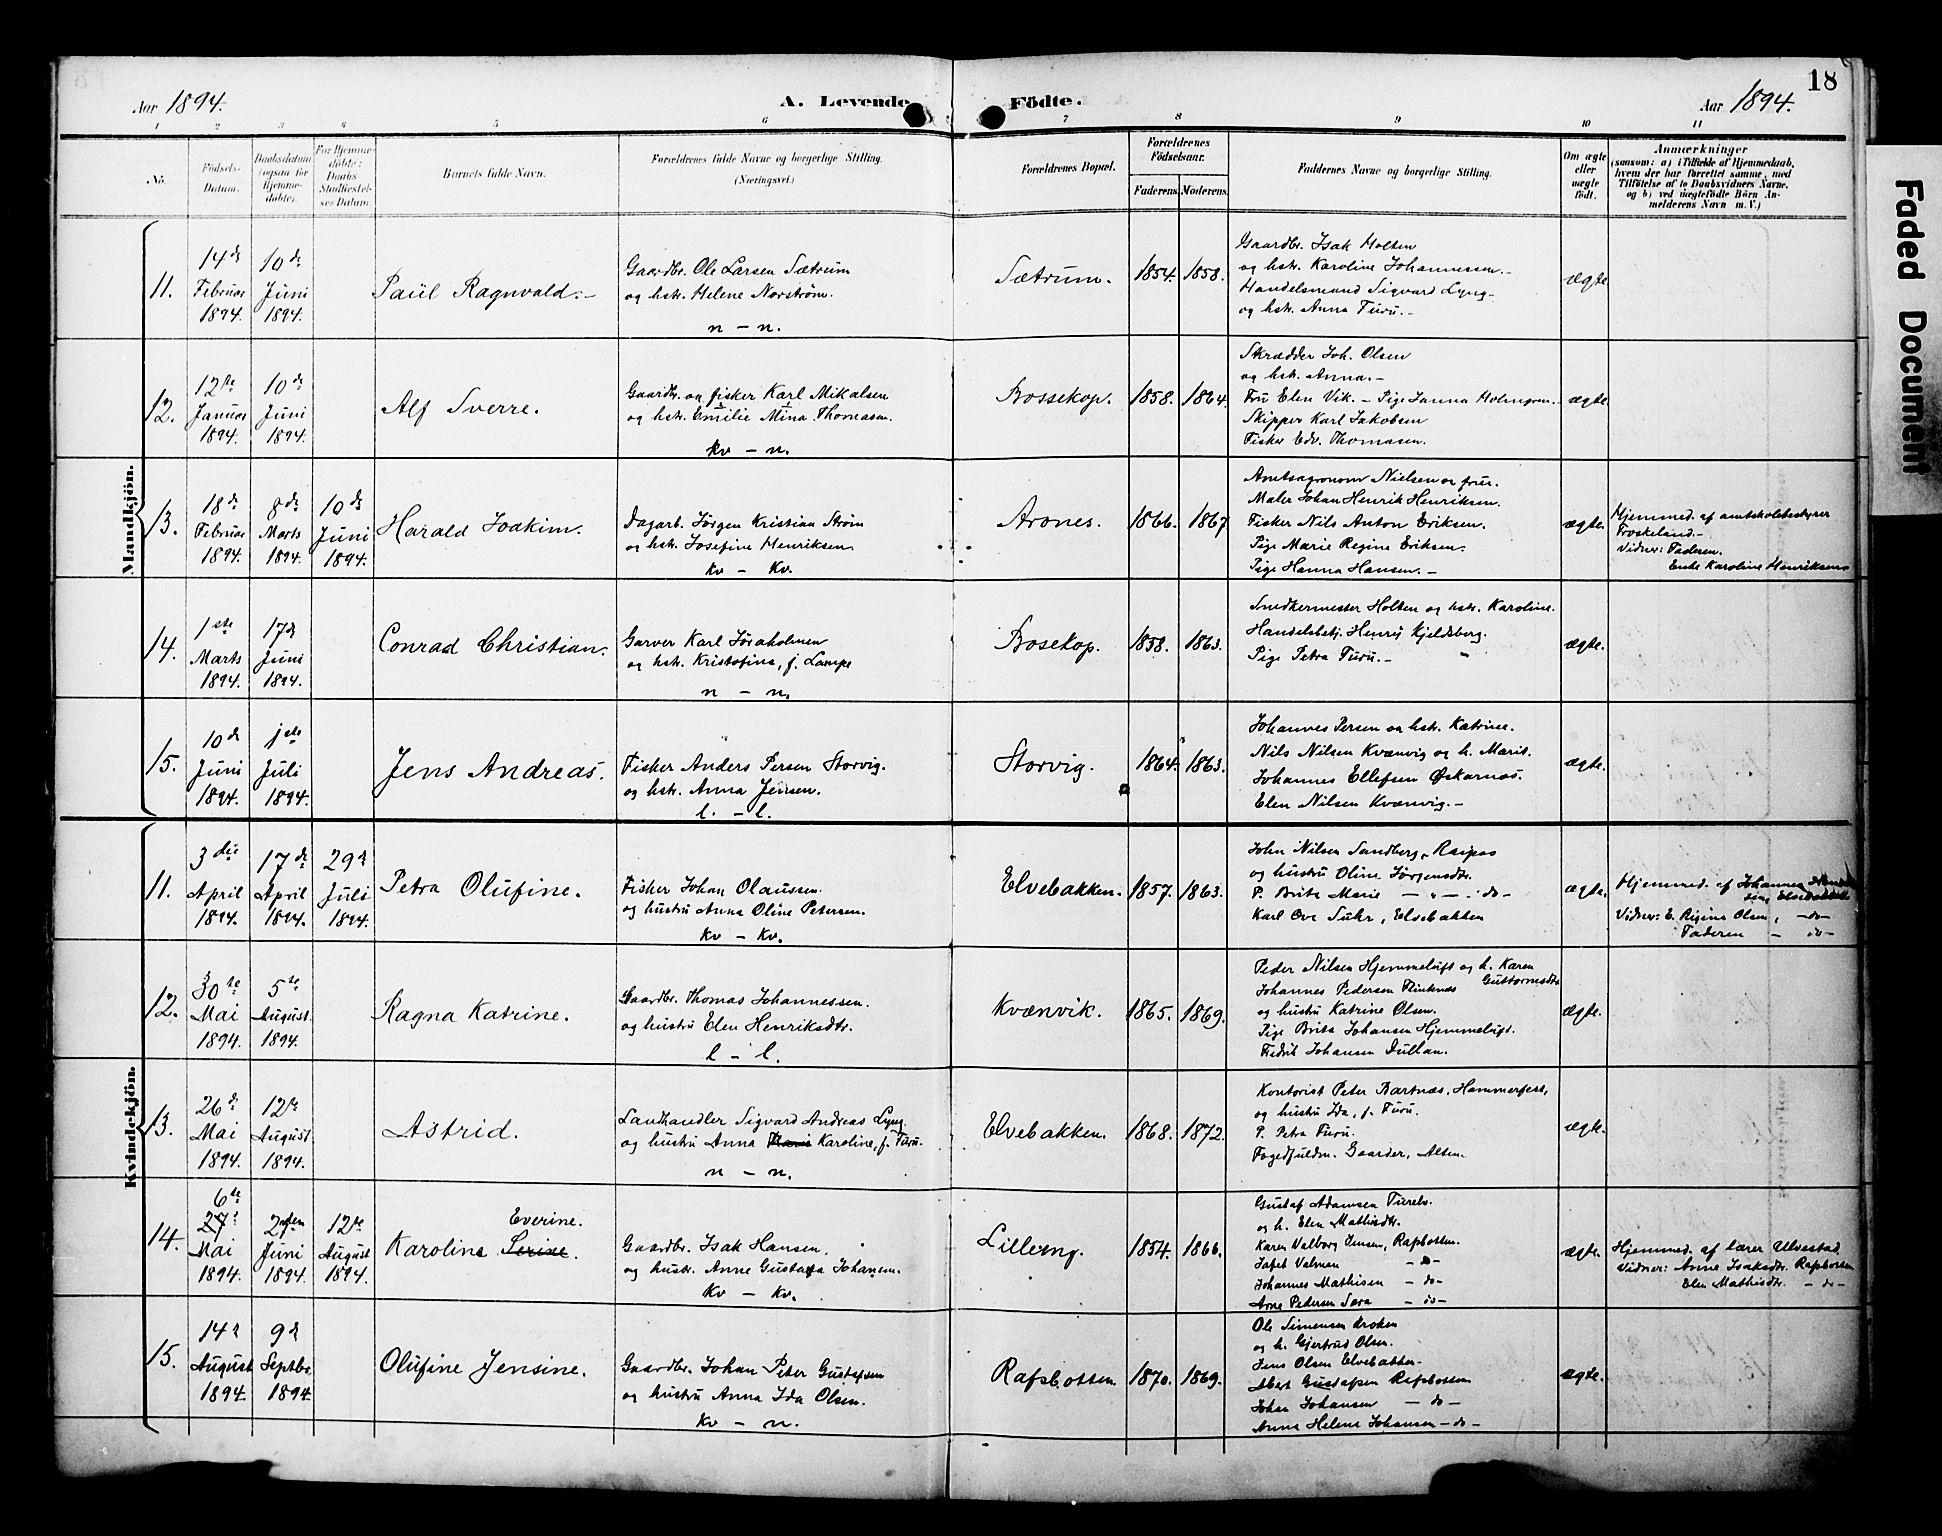 18
Aar 1894.
A. Levende Födte.
Aar 1894.
1 2 3 4 5 6 7 8 9 10 11
No.
Födsels-Datum.
Daabsdatum (ogsaa for Hjemme-döbte).
For Hjemme-döbte: Daabs Stadfæstel-ses Datum
Barnets fulde Navn.
Forældrenes fulde Navne og borgerlige Stilling.
(Næringsvei.)
Forældrenes Bopæl.
Forældrenes Födselsaar.
Faderens. Moderens.
Faddernes Navne og borgerlige Stilling.
Om ægte eller uægte födt.
Anmærkninger
(saasom: a) i Tilfælde af Hjemmedaab, hvem der har forrettet samme, med Tilföielse af to Daabsvidners Navne, og b) ved uægtefödte Börn An-melderens Navn m. V.)
Mandkjön.
11.
14de Februar 1894.
10de Juni 1894.
Paul Ragnvald.-
Gaardbr. Ole Larsen Sætrum
og hstr. Helene Norström.
n - n.
Sætrum.
1854. 1858.
Gaardbr. Isak Holten
og hstr. Karoline Johannessen.-
Handelsmand Sigvard Lyng-
og hstr. Anna Furu.-
ægte
12.
12te Januar 1894.
10de Juni 1894.
Alf Sverre.
Gaardbr. og fisker Karl Mikalsen
og hstr. Emilie Mina Thomasen.
kv - n.
Bossekop.
1858. 1864.
Skrædder Joh. Olsen
og hstr. Anna.-
Fru Elen Vik. - Pige Janna Holmgren.
Skipper Karl Jakobsen
Fisker Edv. Thomasen.
ægte
13.
18de Februar 1894.
8de Marts 1894.
10de Juni 1894.
Harald Joakim.
Dagarb. Jörgen Kristian Ström
og hstr. Josefine Henriksen.
kv - kv.
Arones.
1866. 1867
Amtsagronom Nielsen og frue.
Maler Johan Henrik Henriksen.
Fisker Nils Anton Eriksen.
Pige Marie Regine Eriksen.
Pige Hanna Hansen.-
ægte.
Hjemmed. af amtskolebestyrer
Froskeland.-
Vidner: Faderen.
Enke Karoline Henriksens
14.
1ste Marts 1894.
17de Juni 1894.
Conrad Christian.
Garver Karl
og hstr. Kristofine, f. Lampe
n - n.
Bosekop.
1858. 1863.
Snedkermester Holten og hstr. Karoline.
Handelsbetj. Henrij Kjeldsberg.
Pige Petra Furu.-
ægte.
15.
10de Juni 1894.
1ste Juli 1894.
Jens Andreas.
Fisker Anders Persen Storvig.
og hstr. Anna Jensen.
l. - l.
Storvig.
1864. 1863.
Johannes Persen og hstr. Katrine.
Nils Nilsen Kvænvig og h. Marit.
Johannes Ellefsen Øskarnæs.
Elen Nilsen Kvænvig.-
ægte.
Kvindekjön.
11.
3die April 1894.
17de April 1894.
29de Juli 1894.
Petra Olufine.
Fisker Johan Olaussen.
og hustru Anna Oline Petersen.
kv - kv.
Elvebakken.
1857. 1863.
John Nilsen Sandberg, Raipas
og hustru Oline Jörgensdtr.
P. Brita Marie - " - : do -
Karl Ove Suhr, Elvebakken
ægte.
Hjemmed. af Johannes
Elvebakken
Vidner: E. Regine Olsen, -do-
Faderen - do-
12.
30te Mai 1894.
5te August. 1894.
Ragna Katrine.
Gaardbr. Thomas Johannessen.
og hustru Elen Henriksdtr.
l - l.
Kvænvik.
1865. 1869.
Peder Nilsen Hjemmeluft og h. Karen
Guttormsdtr
Johannes Pedersen Flintnæs
og hustru Katrine Olsen.
Pige Brita Johansen Hjemmeluft.
Fredrik Johansen Dullan.
ægte.
13.
26de Mai 1894.
12te August 1894.
Astrid.
Landhandler Sigvard Andreas Lyng.
og hustru Anna Marie Karoline, f. Furu.
n - n.
Elvebakken.
1868. 1872.
Kontorist Peter Bartnæs, Hammerfest,
og hustru Ida, f. Furu.
P. Petra Furu.
Fogedfuldm. Gaarder, Alten.
ægte.
14.
6te 27de Mai 1894.
2den Juni 1894.
12te August 1894.
Everine.
Karoline Serine.
Gaardbr. Isak Hansen.
og hustr. Anne Gustava Johansen.
kv - kv.
Lilleeng.
1854. 1866.
Gustaf Adamsen Tverelv.
og h. Elen Mathisdtr.
Karen Valborg Jensen, Rafsbotten.
Jafet Valman - do-
Johannes Mathisen - do-
Arne Pedersen Sara - do-
ægte.
Hjemmed. af lærer Ulvestad.
Vidner: Anne Isaksdtr. Rafsbotten
Elen Mathisdtr. - do-
15.
14de August 1894.
9de Septbr. 1894
Olufine Jensine.
Gaardbr. Johan Peter Gustafsen
og hustru Anna Ida Olsen.
kv - n.
Rafsbotten
1870. 1869.
Ole Simensen Kroken
og h. Gjertrud Olsen.
Jens Olsen Elvebakken.
Albert Gustafsen Rafsbotten
Johan Johansen - do-
Anna Helene Johansen - do-
ægte.
Faded Document